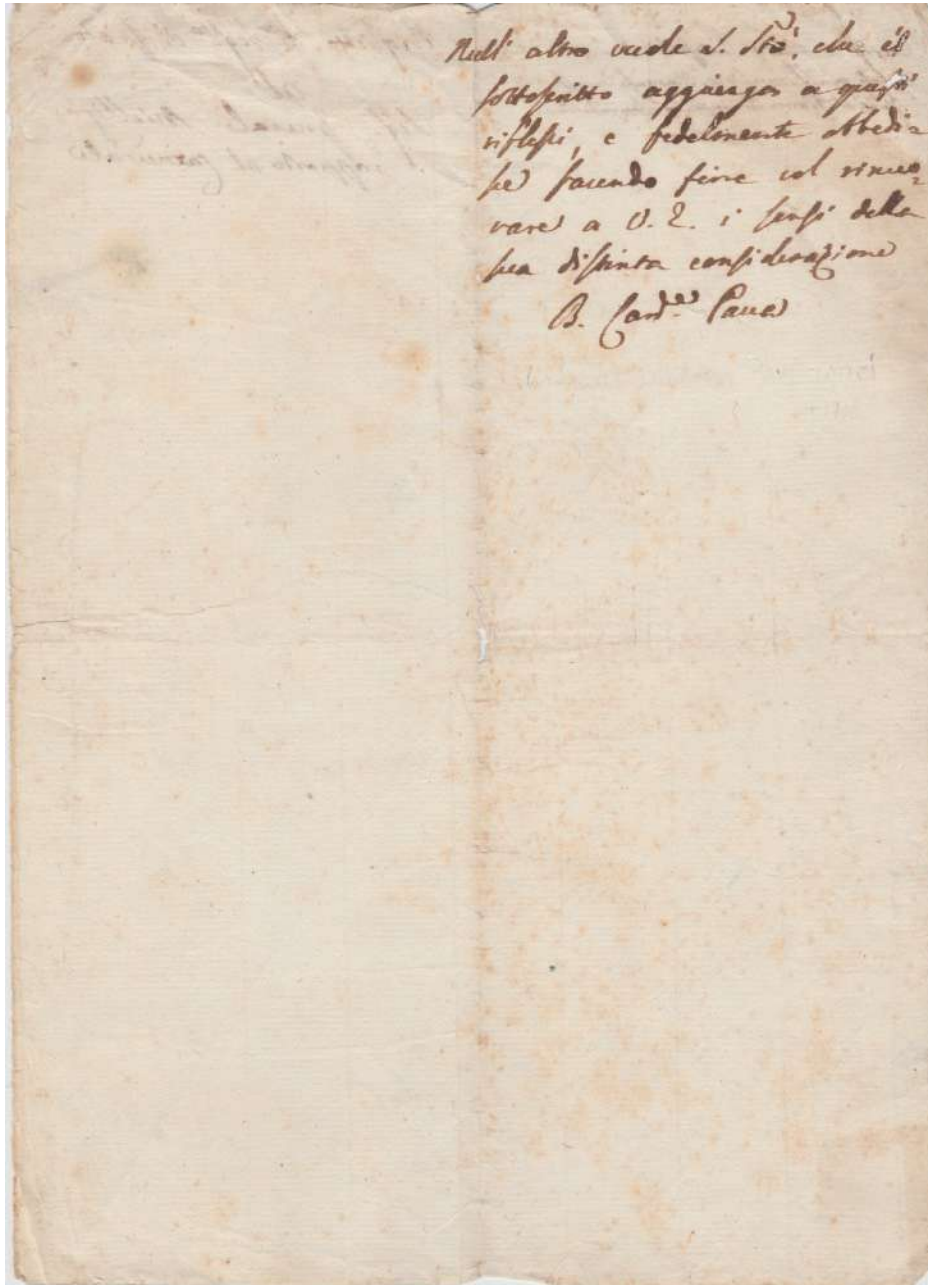 Null' altro vuole S. Stà, che il
sottoscritto aggiunga a questi
riflessi, e fedelmente obbedi=
sce facendo fine col rinno=
vare a V. E. i sensi della
sua distinta considerazione
B. Card.e Pacca